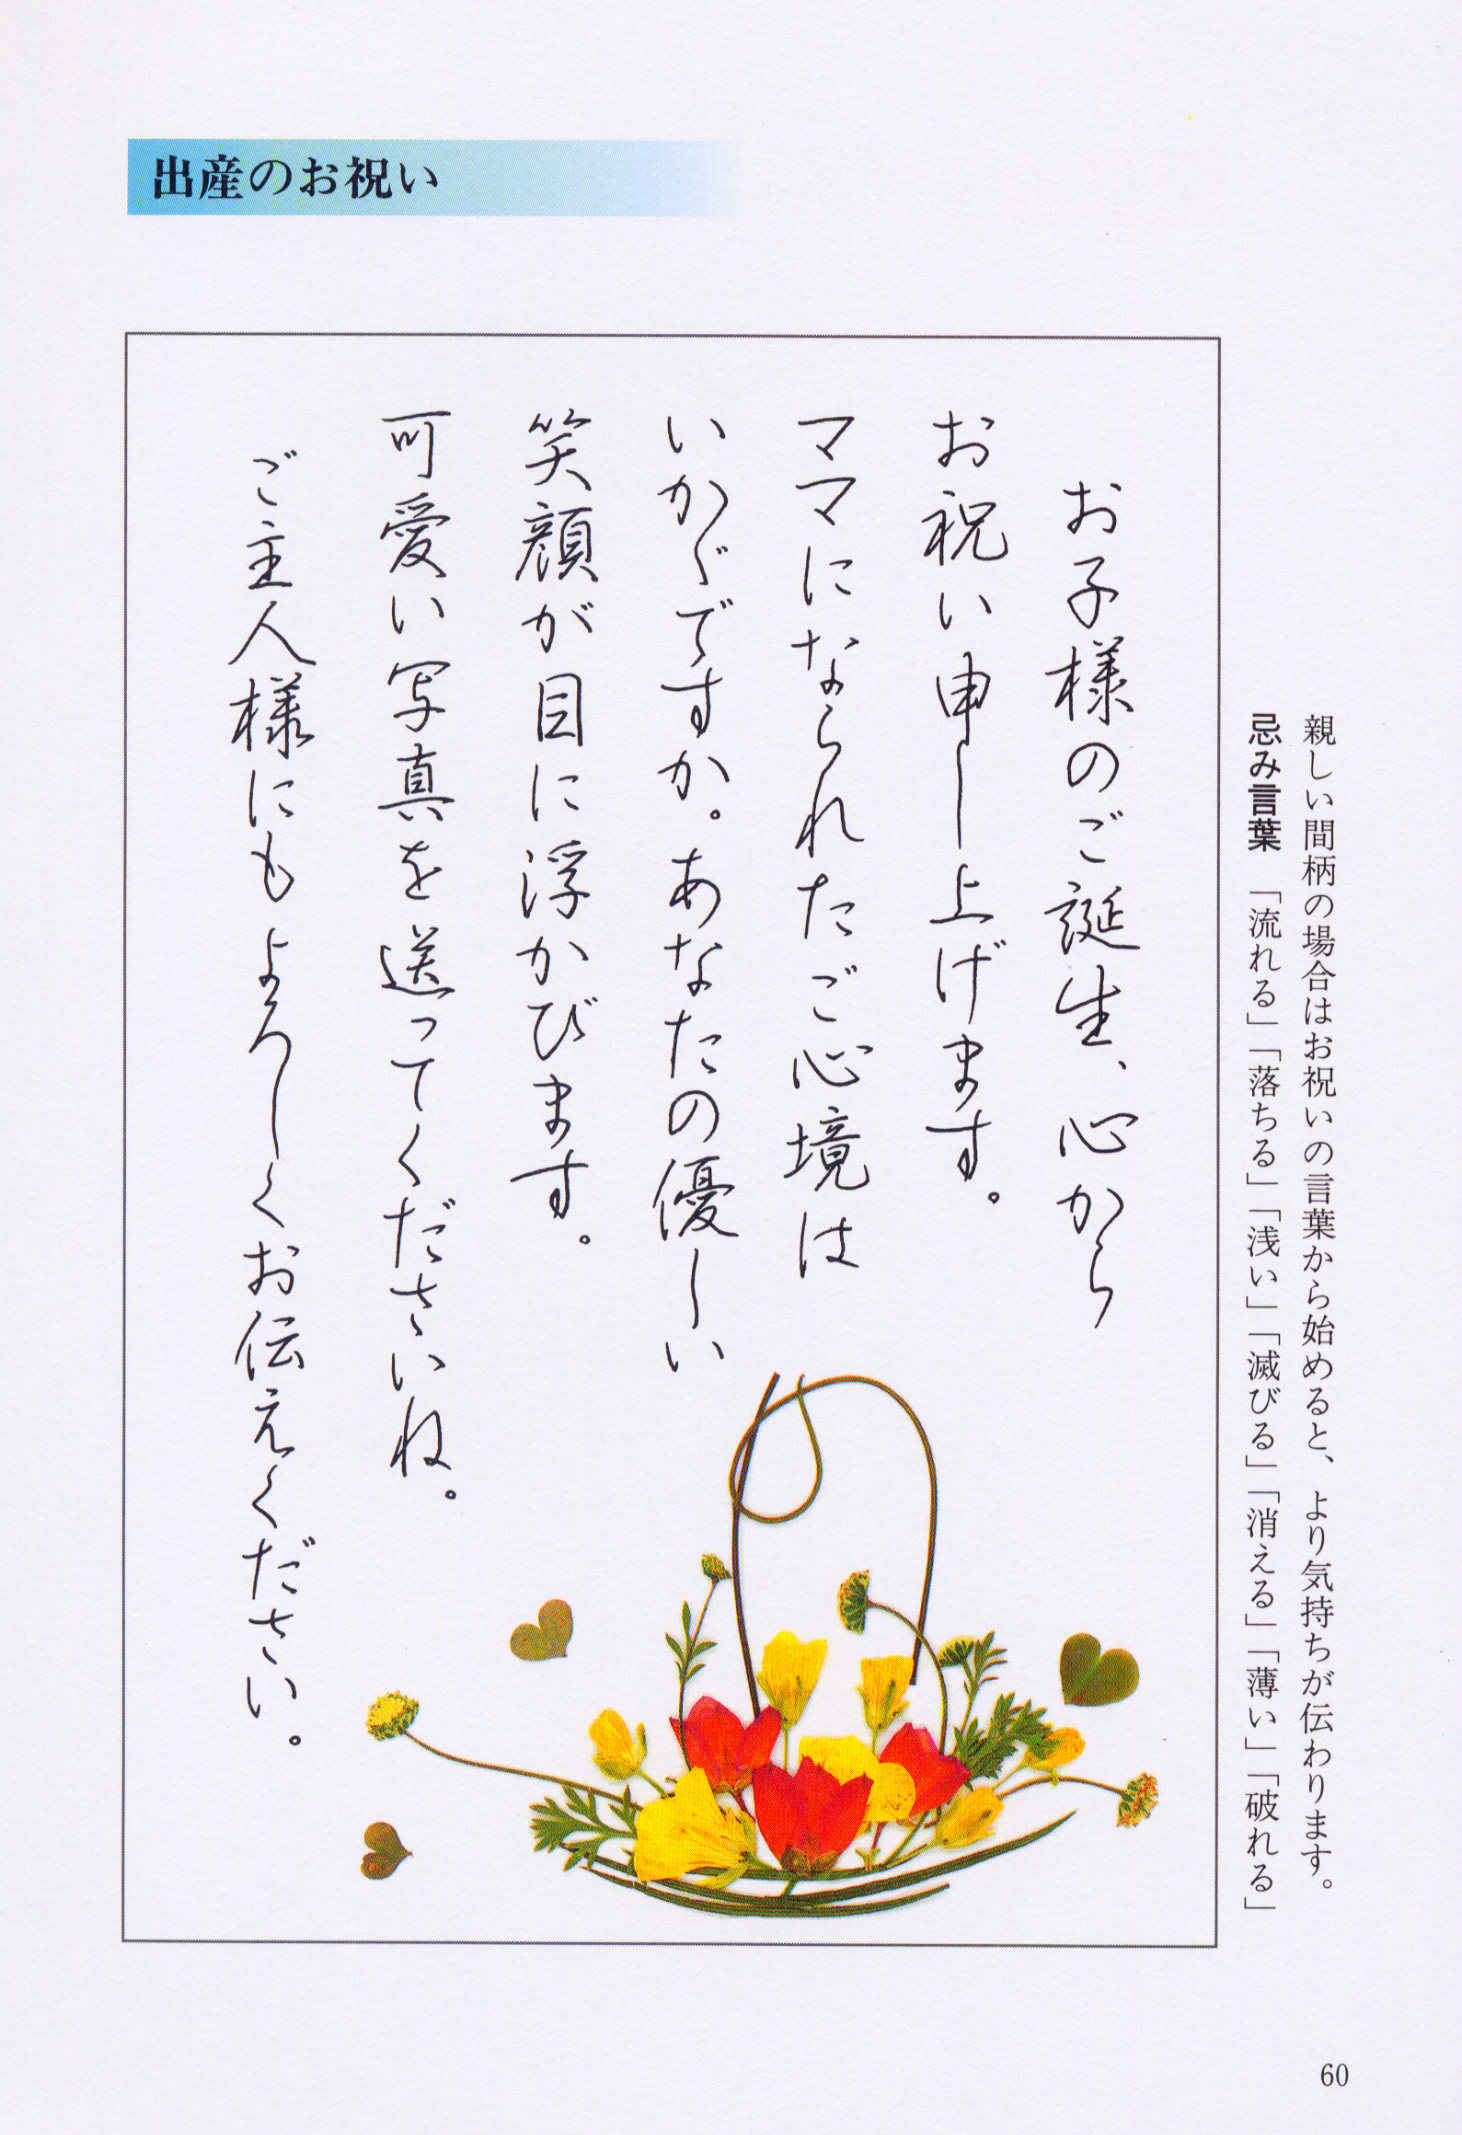 出産のお祝い
親しい間柄の場合はお祝いの言葉から始めると、より気持ちが伝わります。
忌み言葉 「流れる」「落ちる」「浅い」「滅びる」「消える」「薄い」「破れる」
お子様のご誕生、心から
お祝い申し上げます。
ママになられたご心境は
いかがですか。あなたの優しい
笑顔が目に浮かびます。
可愛い写真を送ってくださいね。
ご主人様にもよろしくお伝えください。
60